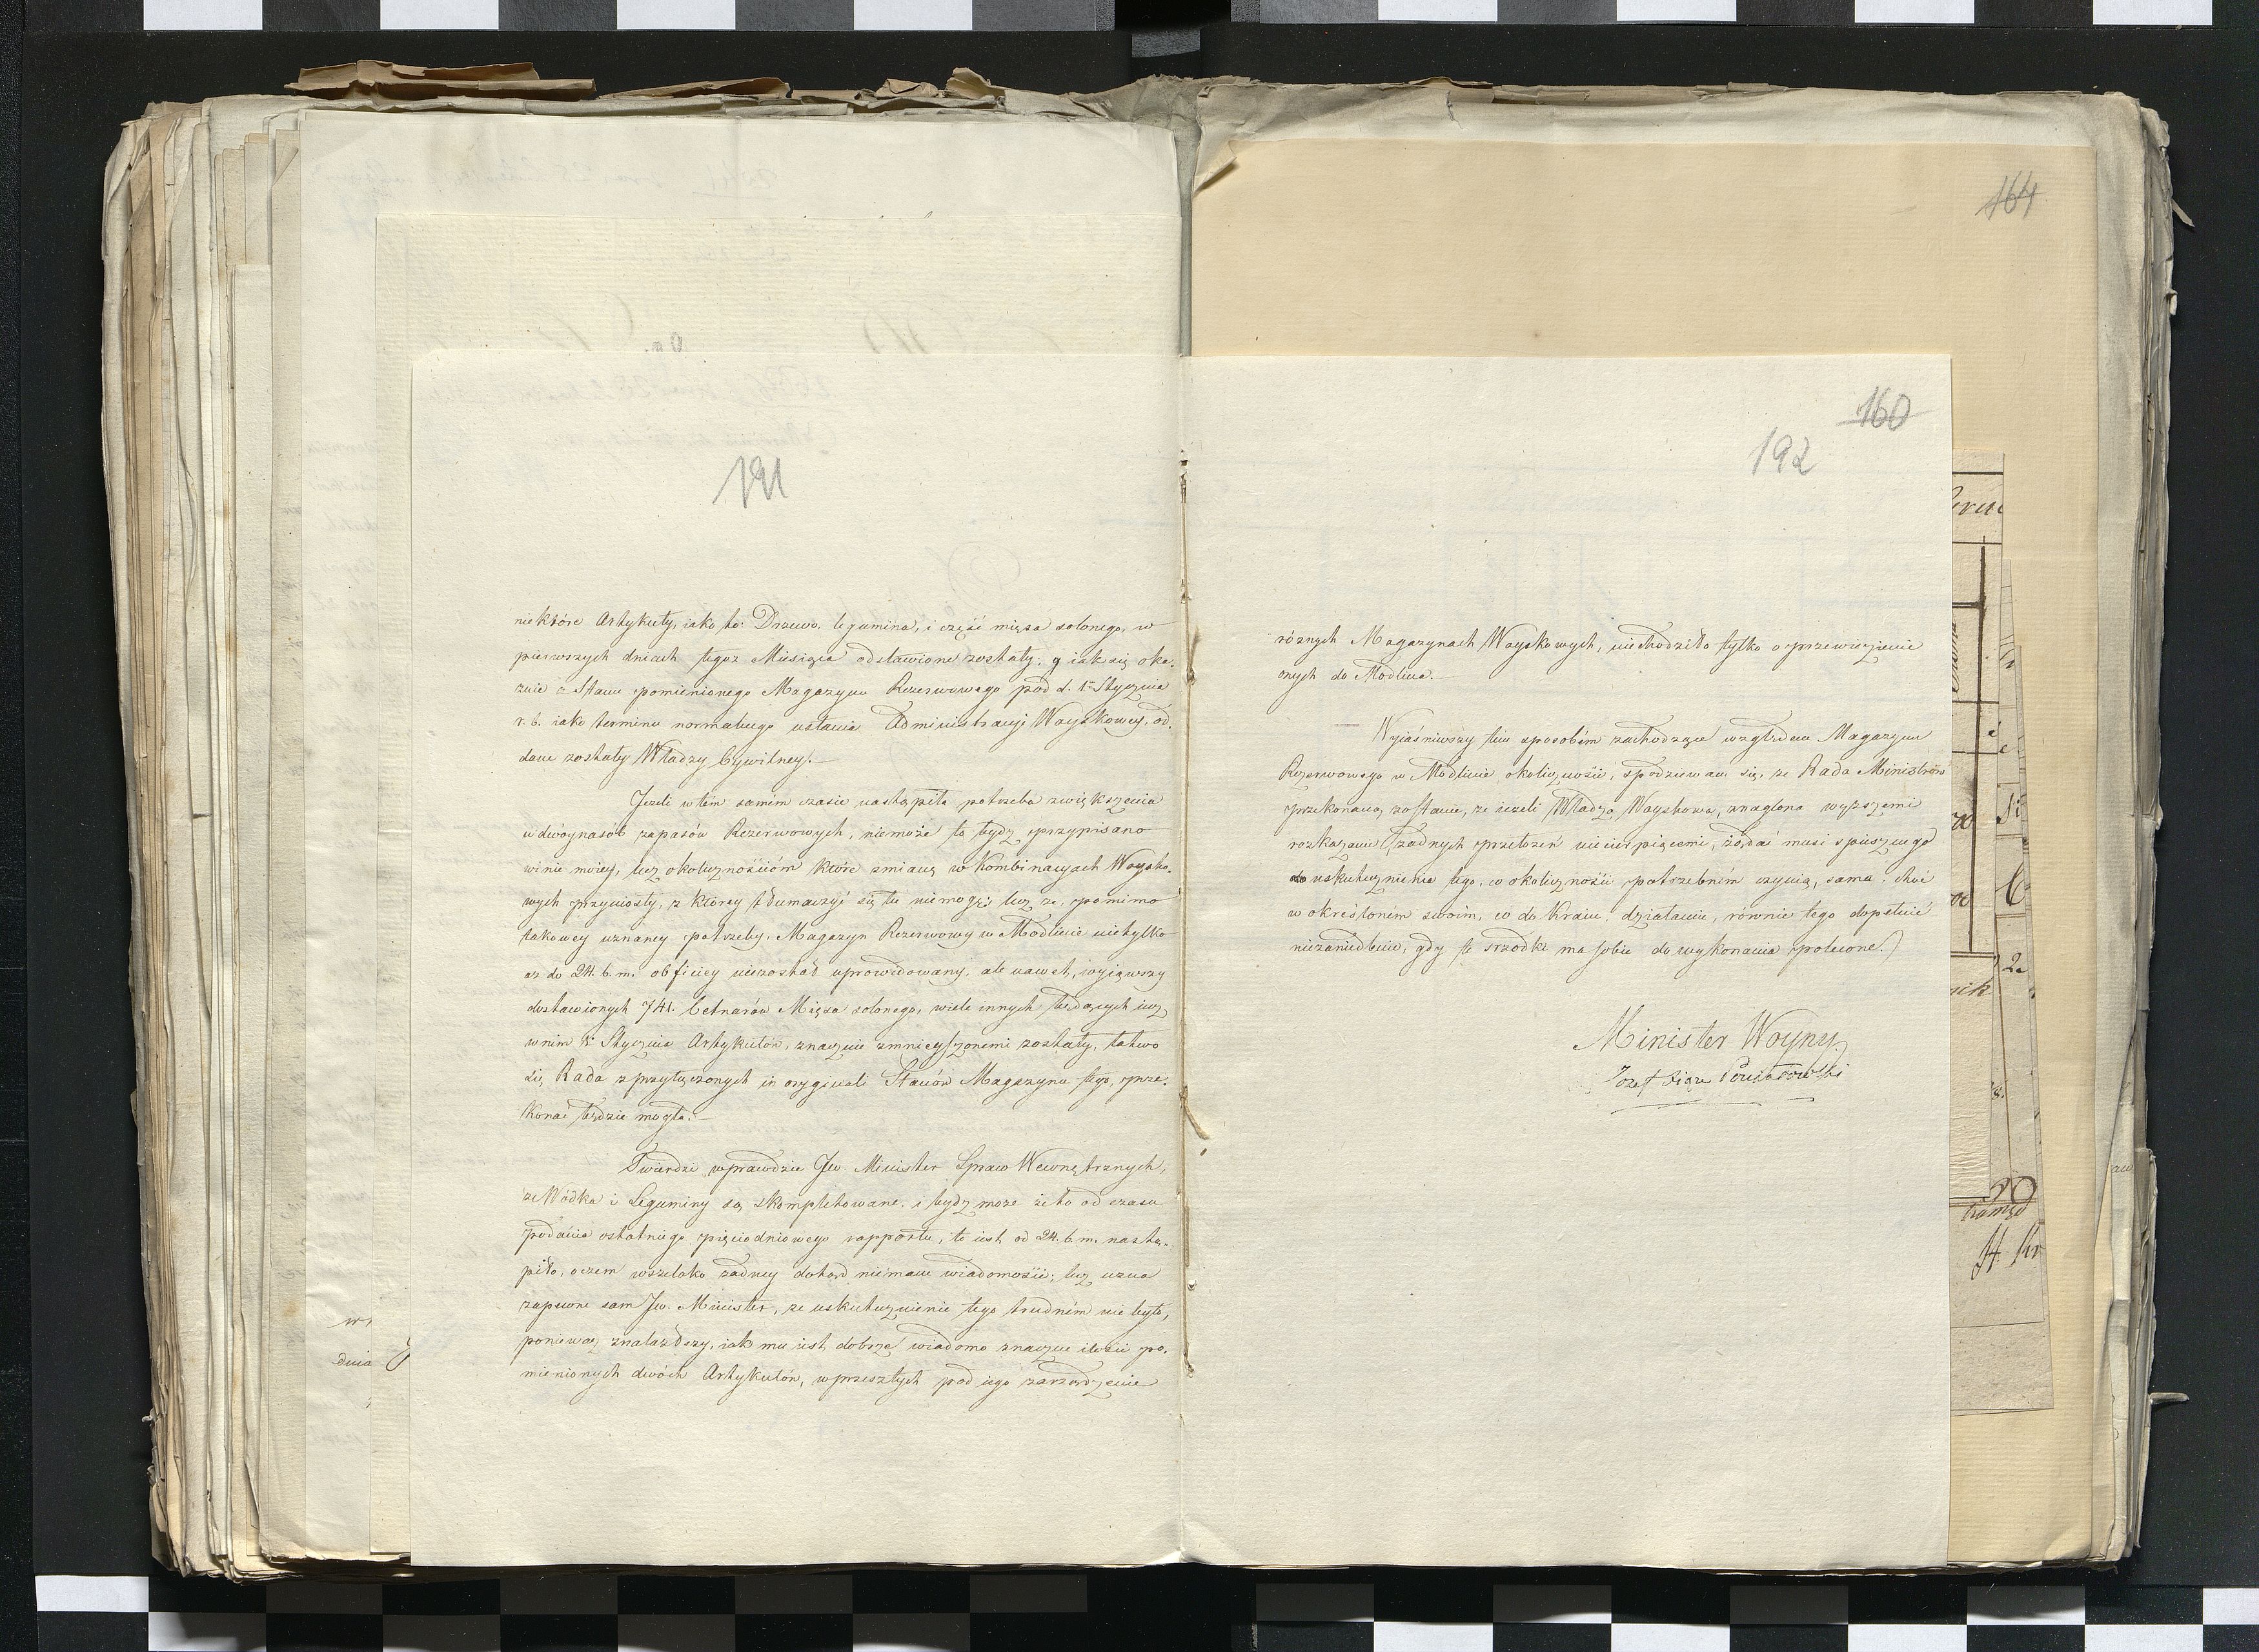 191
niektóre Artykuły, iako to: Drzewo, legumina, i część mięsa solonego, w
pierwszych dniach tegoż Miesiąca odstawione zostały, y iak się oka-
zuie z Stanu pomienionego Magazynu Rezerwowego pod d. 1. Stycznia
r. b. iako terminu normalnego ustania Administracyi Woyskowey, od-
dane zostały Władzy Cywilney.
Jeżeli w tém samém czasie nastąpiła potrzeba zwiększenia
w dwóynasób zapasów Rezerwowych, niemoże to bydź przypisano
winie moiey, lecz okolicznościóm które zmianę w Kombinacyach Woysko-
wych przyniosły, z którey tłumaczyć się tu niemogę: lecz że, pomimo
takowey uznaney potrzeby, Magazyn Rezerwowy w Modlinie nietylko
aż do 24. b. m. obficiey niezostał uprowidowany, ale nawet, wyiąwszy
dostawionych 741. Cetnarów Mięsa solonego, wiele innych będących iuż
w nim 1. Stycznia Artykułów, znacznie zmnieyszonemi zostały, łatwo
się Rada z przyłączonych in originali Stanów Magazynu tego, prze-
konać będzie mogła.
Twierdzi wprawdzie Jw. Minister Spraw Wewnętrznych,
że Wódka i Leguminy są skompletowane, i bydź może że to od czasu
podania ostatniego pięciodniowego rapportu, to iest, od 24. b. m. nastą-
piło, o czem wszelako żadney dotąd niemam wiadomości; lecz uzna
zapewne sam Jw. Minister, że uskutecznienie tego trudném nie było,
ponieważ znalazłszy, iak mu iest dobrze wiadomo znaczne ilości po-
mienionych dwóch Artykułów, w przeszłych pod iego zarządzenie
164
160
192
różnych Magazynach Woyskowych, niechodziło tylko o przewiezienie
onych do Modlina.
Wyiaśniwszy tém sposobém zachodzące względem Magazynu
Rezerwowego w Modlinie okoliczności, spodziewam się, że Rada Ministrów
przekonaną zostanie, że ieżeli Władza Woyskowa, znaglona wyższemi
rozkazami żadnych przełożeń niecierpiącemi, żądać musi spiesznego
uskutecznienia tego, co okoliczności potrzebném czynią, sama choć
w określoném swoim, co do Kraiu, działaniu, równie tego dopełnić
niezaniedbuie, gdy te srzodki ma sobie do wykonania polecone.
Minister Woyny
Jozef Xiąże Poniatowski